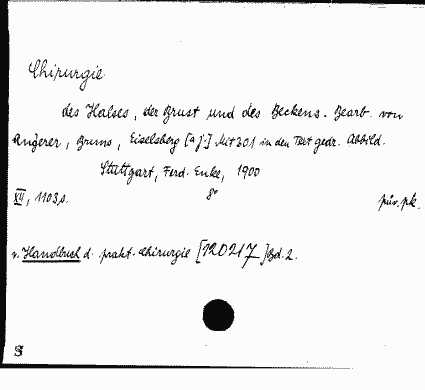 Chirurgie
des Halses, der Brust und des Beckens. Bearb. von
Angerer, Bruns, Eiselsberg [a j.] Mit 301 in den Text gedr. Abbild.
Stuttgart, Ferd. Enke, 1900
XII, 1103 s. 8° pův. pk.
v. Handbuch d. prakt. Chirurgie [120217] Bd. 2.